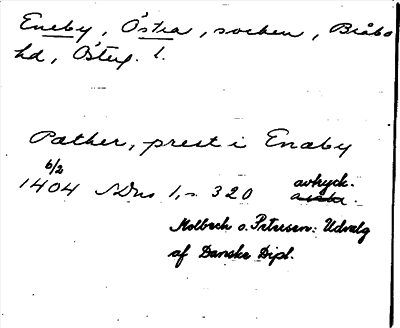 Eneby, Östra, socken, Bråbo
hd, Östug. l.
Pæther, prest i Enæby
6/2
1404 SDns 1, s 320 avtryck.
Molbech o. Petersen: Udvalg
af Danske Dipl.